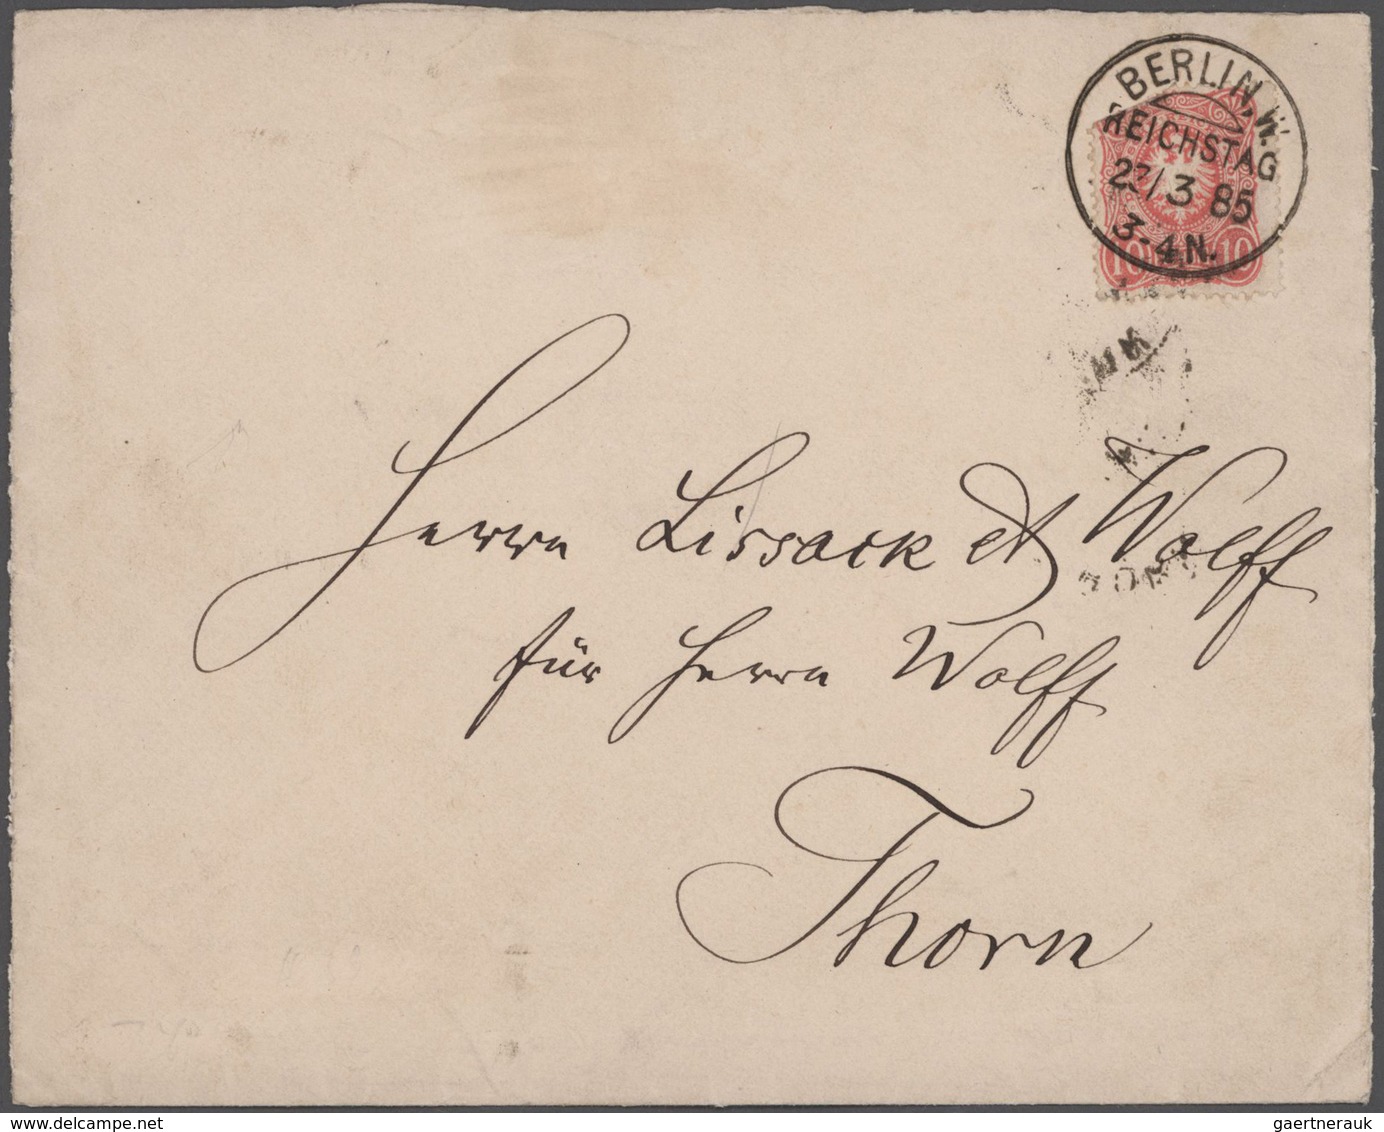 BERLIN, W.
REICHSTAG
/3 85
3-4N.
10 10
Herrn Lissack et Wolff
für Herrn Wolff
Thorn
delcampe.net
gaertnerauk